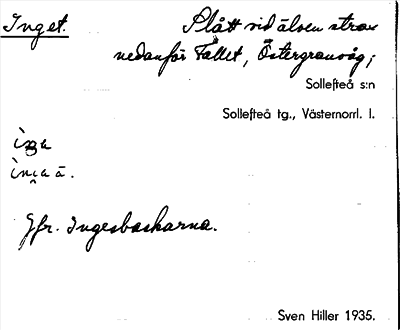 Inget. Slått vid älven strax
nedanför Fallet, Östergransåg;
Sollefteå s:n
Sollefteå tg., Västernorrl. l.
Jfr. Ingesbackarna.
Sven Hiller 1935.